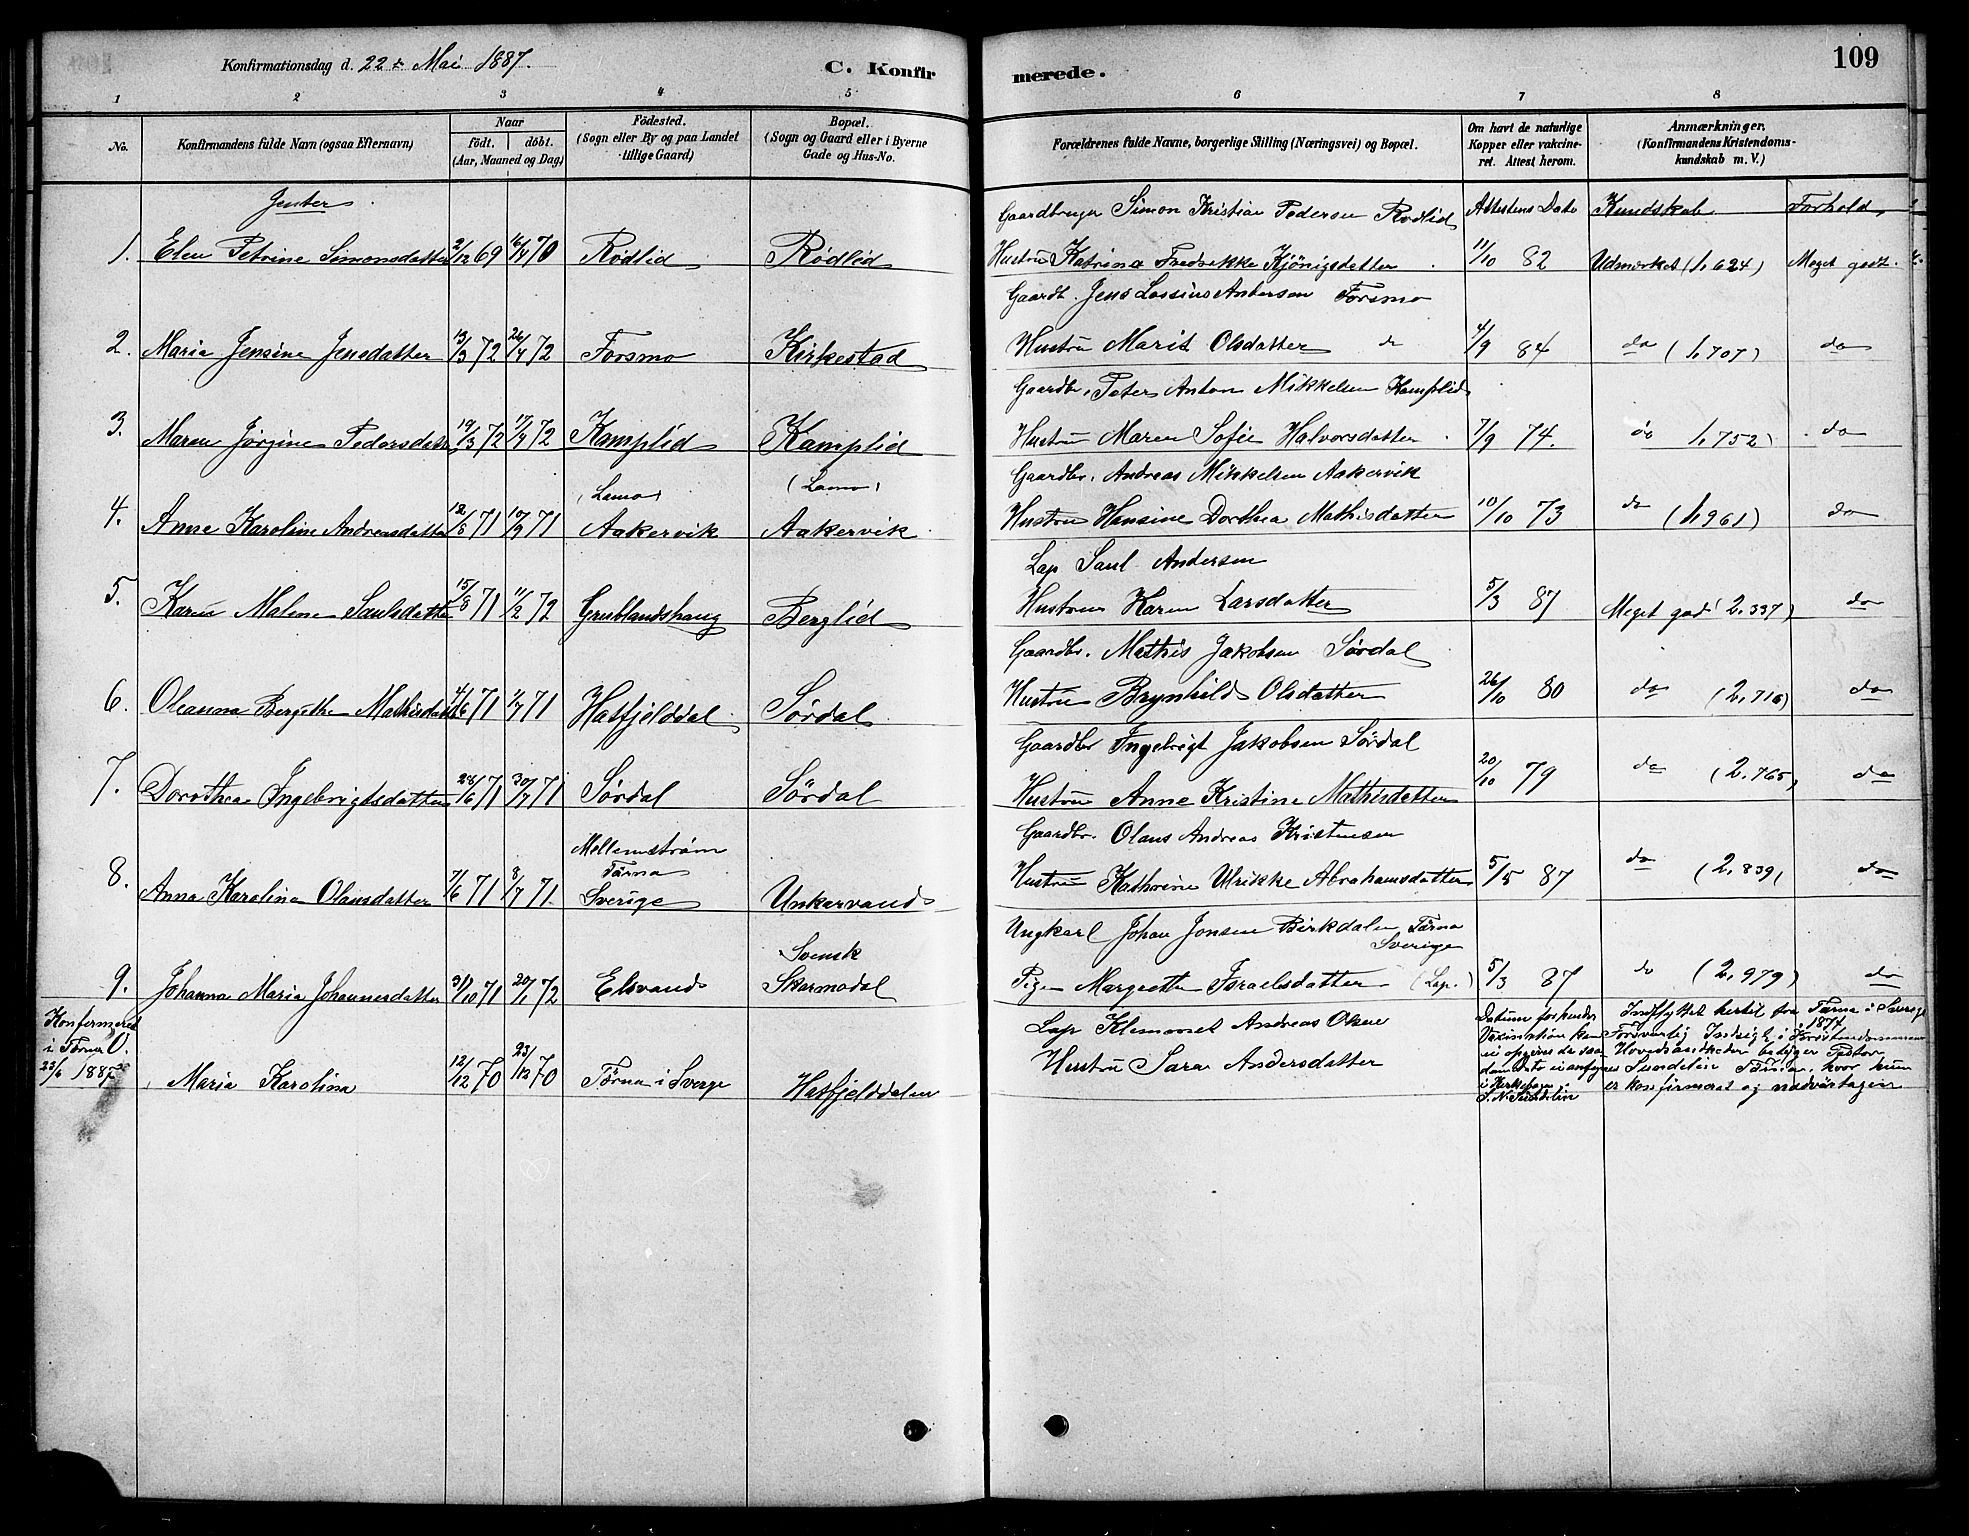 Konfirmationsdag d. 22 Mai 1887.
C. Konfirmerede.
109
1 2 3 4 5 6 7 8
No.
Konfirmandens fulde Navn (ogsaa Efternavn)
Naar
födt. döbt.
(Aar, Maaned og Dag)
Födested.
(Sogn eller By og paa Landet
tillige Gaard)
Bopæl.
(Sogn og Gaard eller i Byerne
Gade og Hus-No.
Forældrenes fulde Navne, borgerlige Stilling (Næringsvei) og Bopæl.
Om havt de naturlige
Kopper eller vakcine-
ret. Attest herom.
Anmærkninger.
(Konfirmandens Kristendoms-
kundskab m. V.)
Jenter
Attestens Dato Kundskab Forhold
Gaardbruger Simon Kristian Pedersen Rødlid
1. Elen Petrine Simonsdatter 2/12 69 16/4 70 Rødlid Rødlid Hustru Katrina Fredrekke Kjönigsdatter 11/10 82 Udmærket (1,624) Meget godt.
Gaardb. Jens Lassius Andersen Forsmo
2. Maria Jensine Jensdatter 13/3 72 26/4 72 Forsmo Kirkestad Hustru Marit Olsdatter do 4/9 84 do (1,707) do
Gaardbr. Peter Anton Mikkelsen Kamplid
3. Maren Jörgine Pedersdatter 19/3 72 17/4 72 Kamplid Kamplid Hustru Maren Sofie Halvorsdatter 7/9 74. do 1,752) do
Gaardbr. Andreas Mikkelsen Aakervik
(Lamo) (Lamo)
4. Anne Karoline Andreasdatter 12/8 71 17/9 71 Aakervik Aakervik Hustru Hansine Dorthea Mathisdatter 10/10 73 do (1,961) do
Lap Saul Andersen
5. Karen Malene Saulsdatter 15/8 71 11/2 72 Grublandshaug Berglid Hustru Karen Larsdatter 5/3 87 Meget god (2,337) do
Gaardbr. Mathis Jakobsen Sørdal
6. Oleanna Bergithe Mathisdatter 4/6 71 71 Hatfjelddal Sørdal Hustru Brynhild Olsdatter 26/10 80 do (2,716) do
Gaardbr Ingebrigt Jakobsen Sördal
7. Dorothea Ingebrigtsdatter 28/6 71 30/7 71 Sördal Sördal Hustru Anne Kristine Mathisdatter 20/10 79 do (2,765) do
Gaardbr. Olaus Andreas Kristensen
Mellemström
Tärna
8. Anna Karolina Olausdatter 7/6 71 8/7 71. Sverige Unkervand Hustru Kathrine Ulrikke Abrahamsdatter 5/5 87 do (2,839) do
Ungkarl Johan Jonsen Birkdalen, Tärna
Sverige
Svensk
9. Johanna Maria Johannesdatter 31/10 71 20/1 72 Elsvand Skarmodal Pige Margrethe Israelsdatter (Lap.) 5/3 87 do (2,979) do
Konfermeret
i Tärna
23/6 1885
Lap Klemmet Andreas Olsen
Maria Karolina 12/12 70 23/12 70 Tärna i Sverge Hatfjelddalen Hustru Sara Andersdatter
Datum for hendes
Vaxination kan
ei opgives da saa-
dan dato ei anføres
i Kirkebogen
Indflyttet hertil fra Tärna i Sverige
1874
Forsvarlig Indsigt i Kristendommens
Hovedsandheder betyger Pastor
Sundelin Tärna, hvor hun
er konfirmeret og